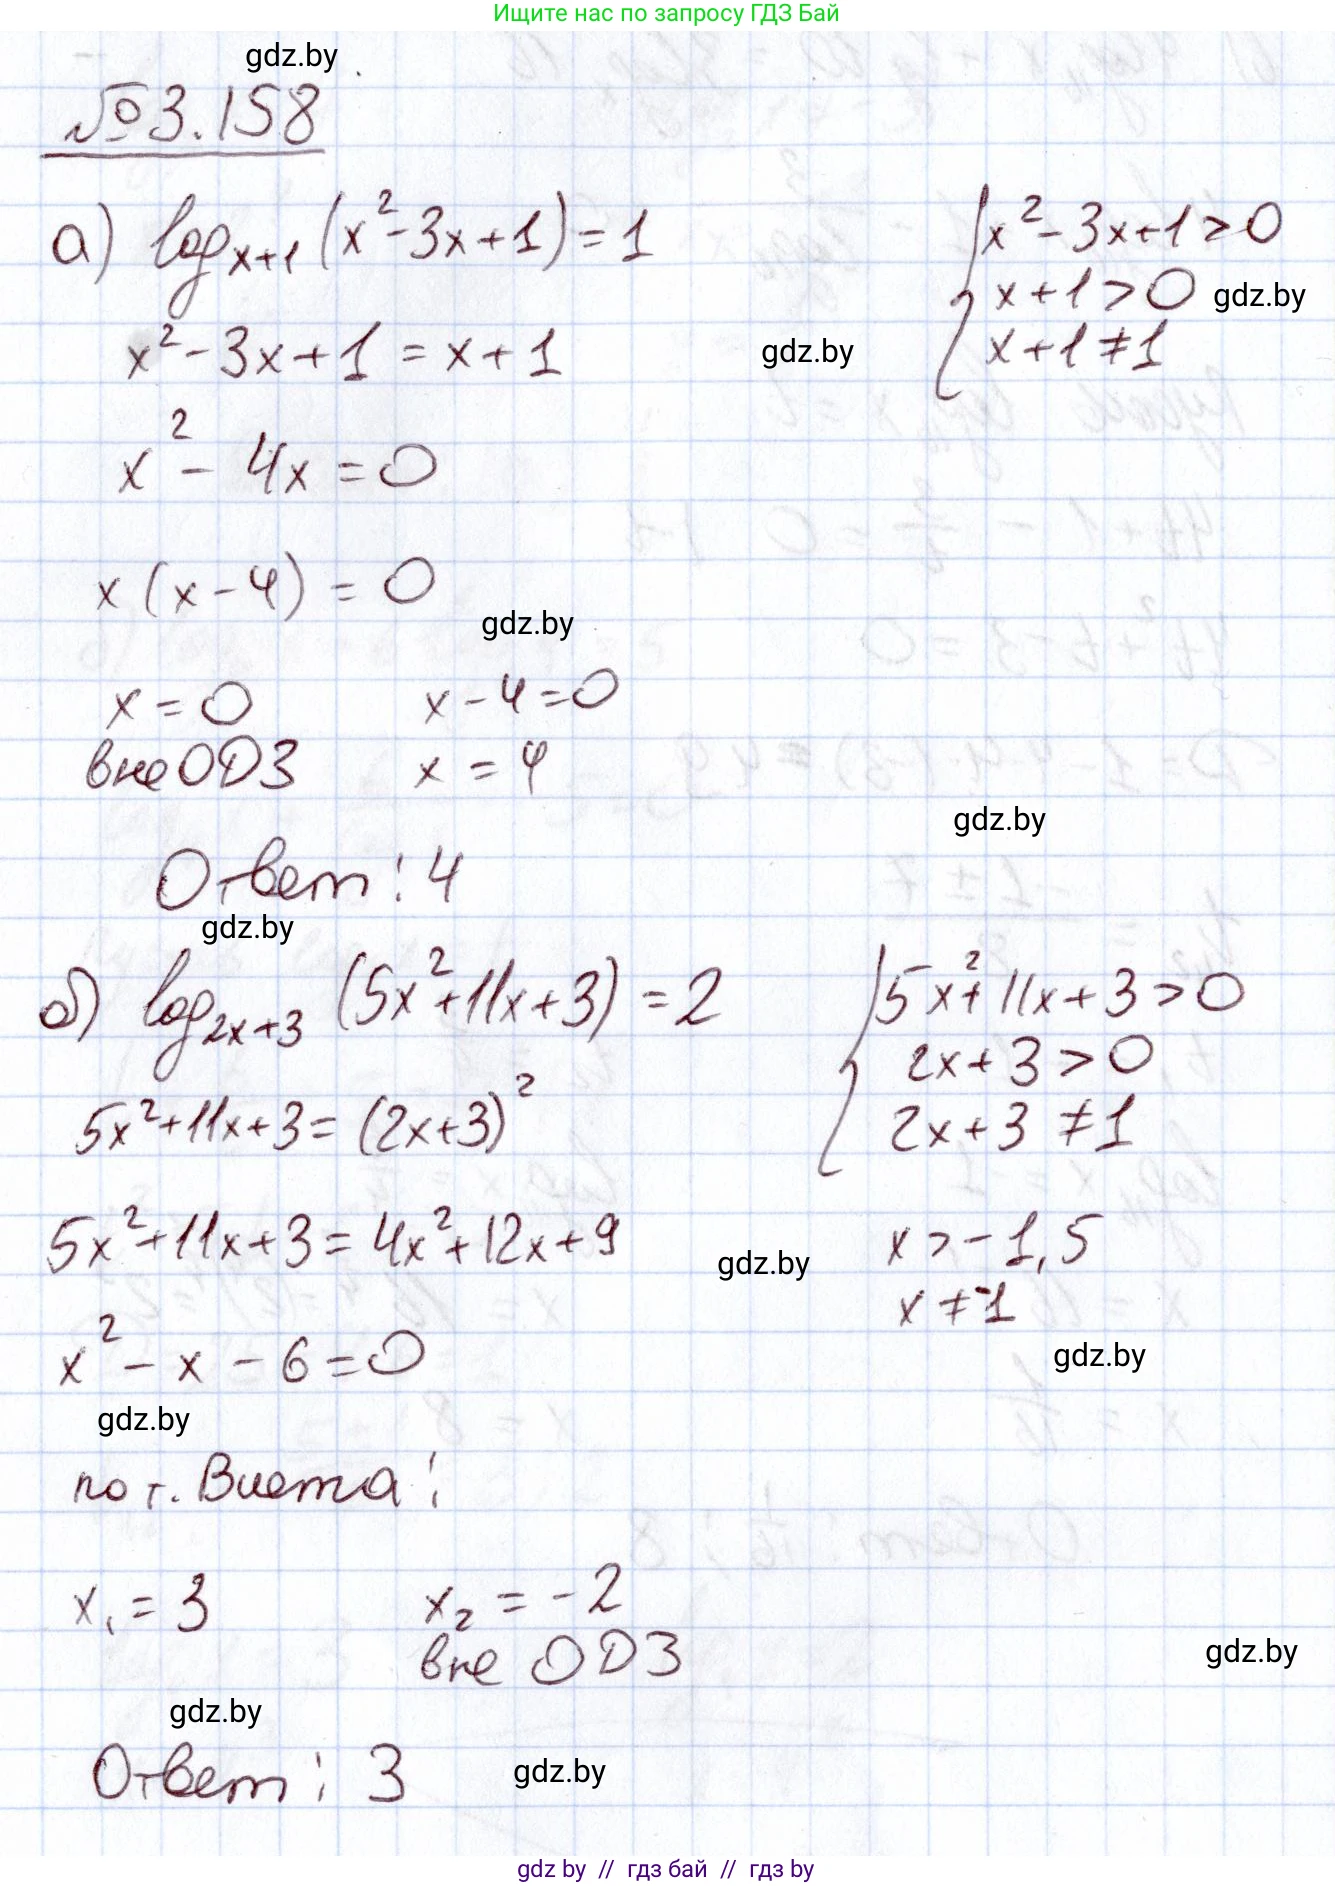 Ищите нас по запросу ГДЗ Бай
gdz.by
№ 3.158
а) log_{x+1} (x² - 3x + 1) = 1
{ x² - 3x + 1 > 0
x + 1 > 0
gdz.by
x + 1 ≠ 1
x² - 3x + 1 = x + 1
gdz.by
x² - 4x = 0
x (x - 4) = 0
gdz.by
x = 0 x - 4 = 0
вне ОДЗ x = 4
gdz.by
Ответ: 4
gdz.by
б) log_{2x+3} (5x² + 11x + 3) = 2
{ 5x² + 11x + 3 > 0
2x + 3 > 0
2x + 3 ≠ 1
5x² + 11x + 3 = (2x + 3)²
5x² + 11x + 3 = 4x² + 12x + 9
gdz.by
x > -1,5
x ≠ -1
gdz.by
x² - x - 6 = 0
gdz.by
по т. Виета:
x₁ = 3 x₂ = -2
вне ОДЗ
gdz.by
gdz.by
Ответ: 3
gdz.by
gdz by // гдз бай // гдз by